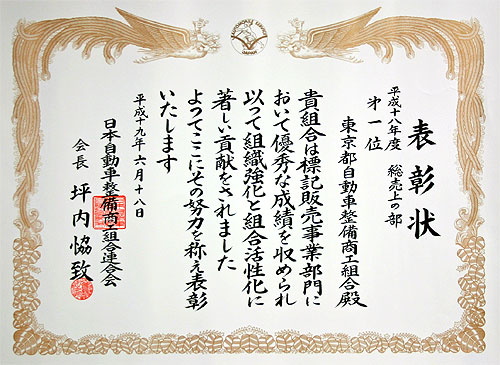 表彰状
平成十八年度 総売上の部
第一位
東京都自動車整備商工組合殿
貴組合は標記販売事業部門に
おいて優秀な成績を収められ
以って組織強化と組合活性化に
著しい貢献をされました
よってここにその努力を称え表彰
いたします
平成十九年六月十八日
日本自動車整備商工組合連合会
会長 坪内恊致